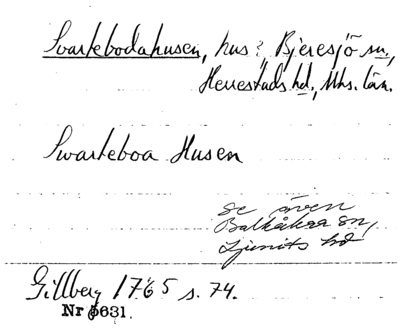 Svartebodahusen, hus i Bjeresjö sn.,
Herrestads hd., Mhs. län.
Swarteboa Husen
se även
Balkåkra sn,
Ljunits hd
Gillberg 1765 s. 74.
Nr 5631.